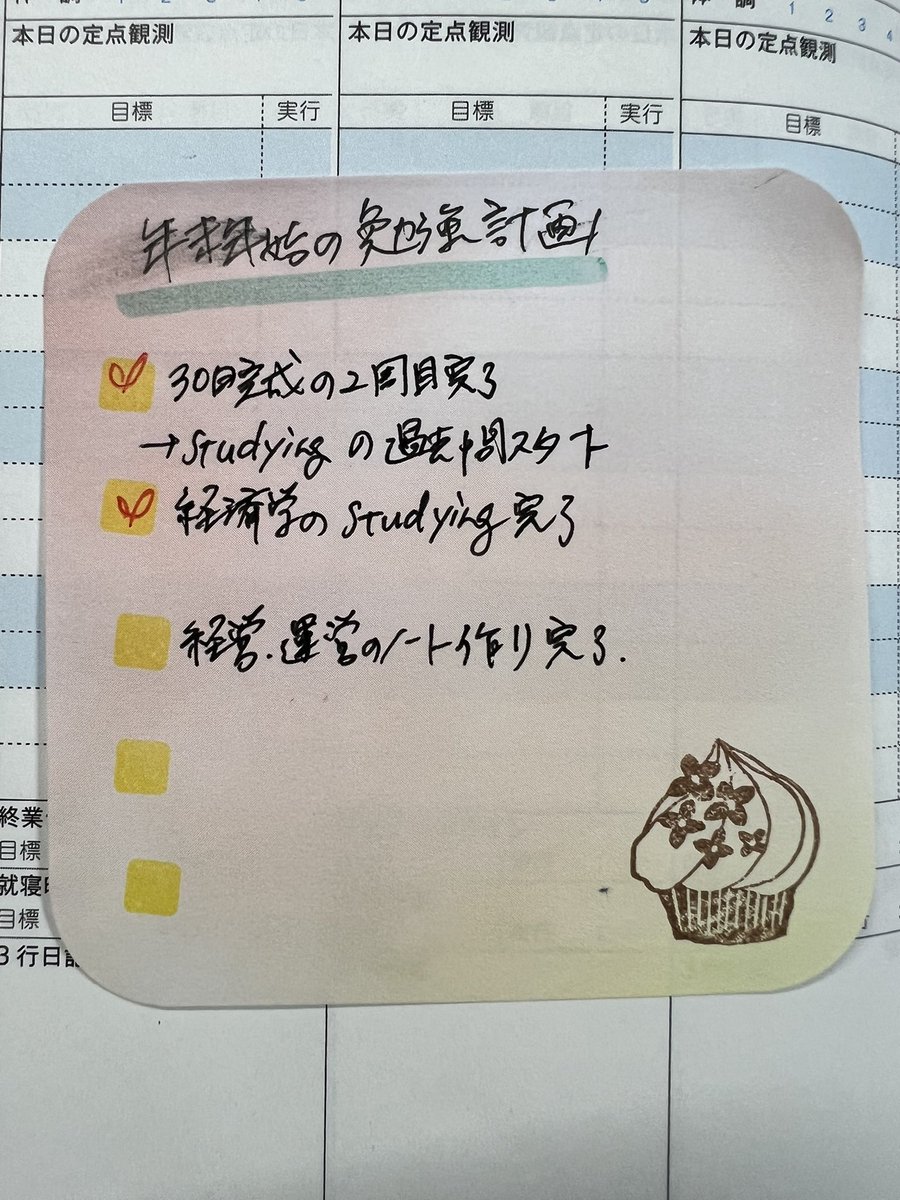 本日の定点観測 本日の定点観測 本日の定点観測
目標 実行 目標 実行 目標
年末年始の勉強計画
30日完成の2回目完了
→Studyingの過去問スタート
経済学のStudying完了
経営・運営のノート作り完了.
終業
目標
就寝
目標
3行日記